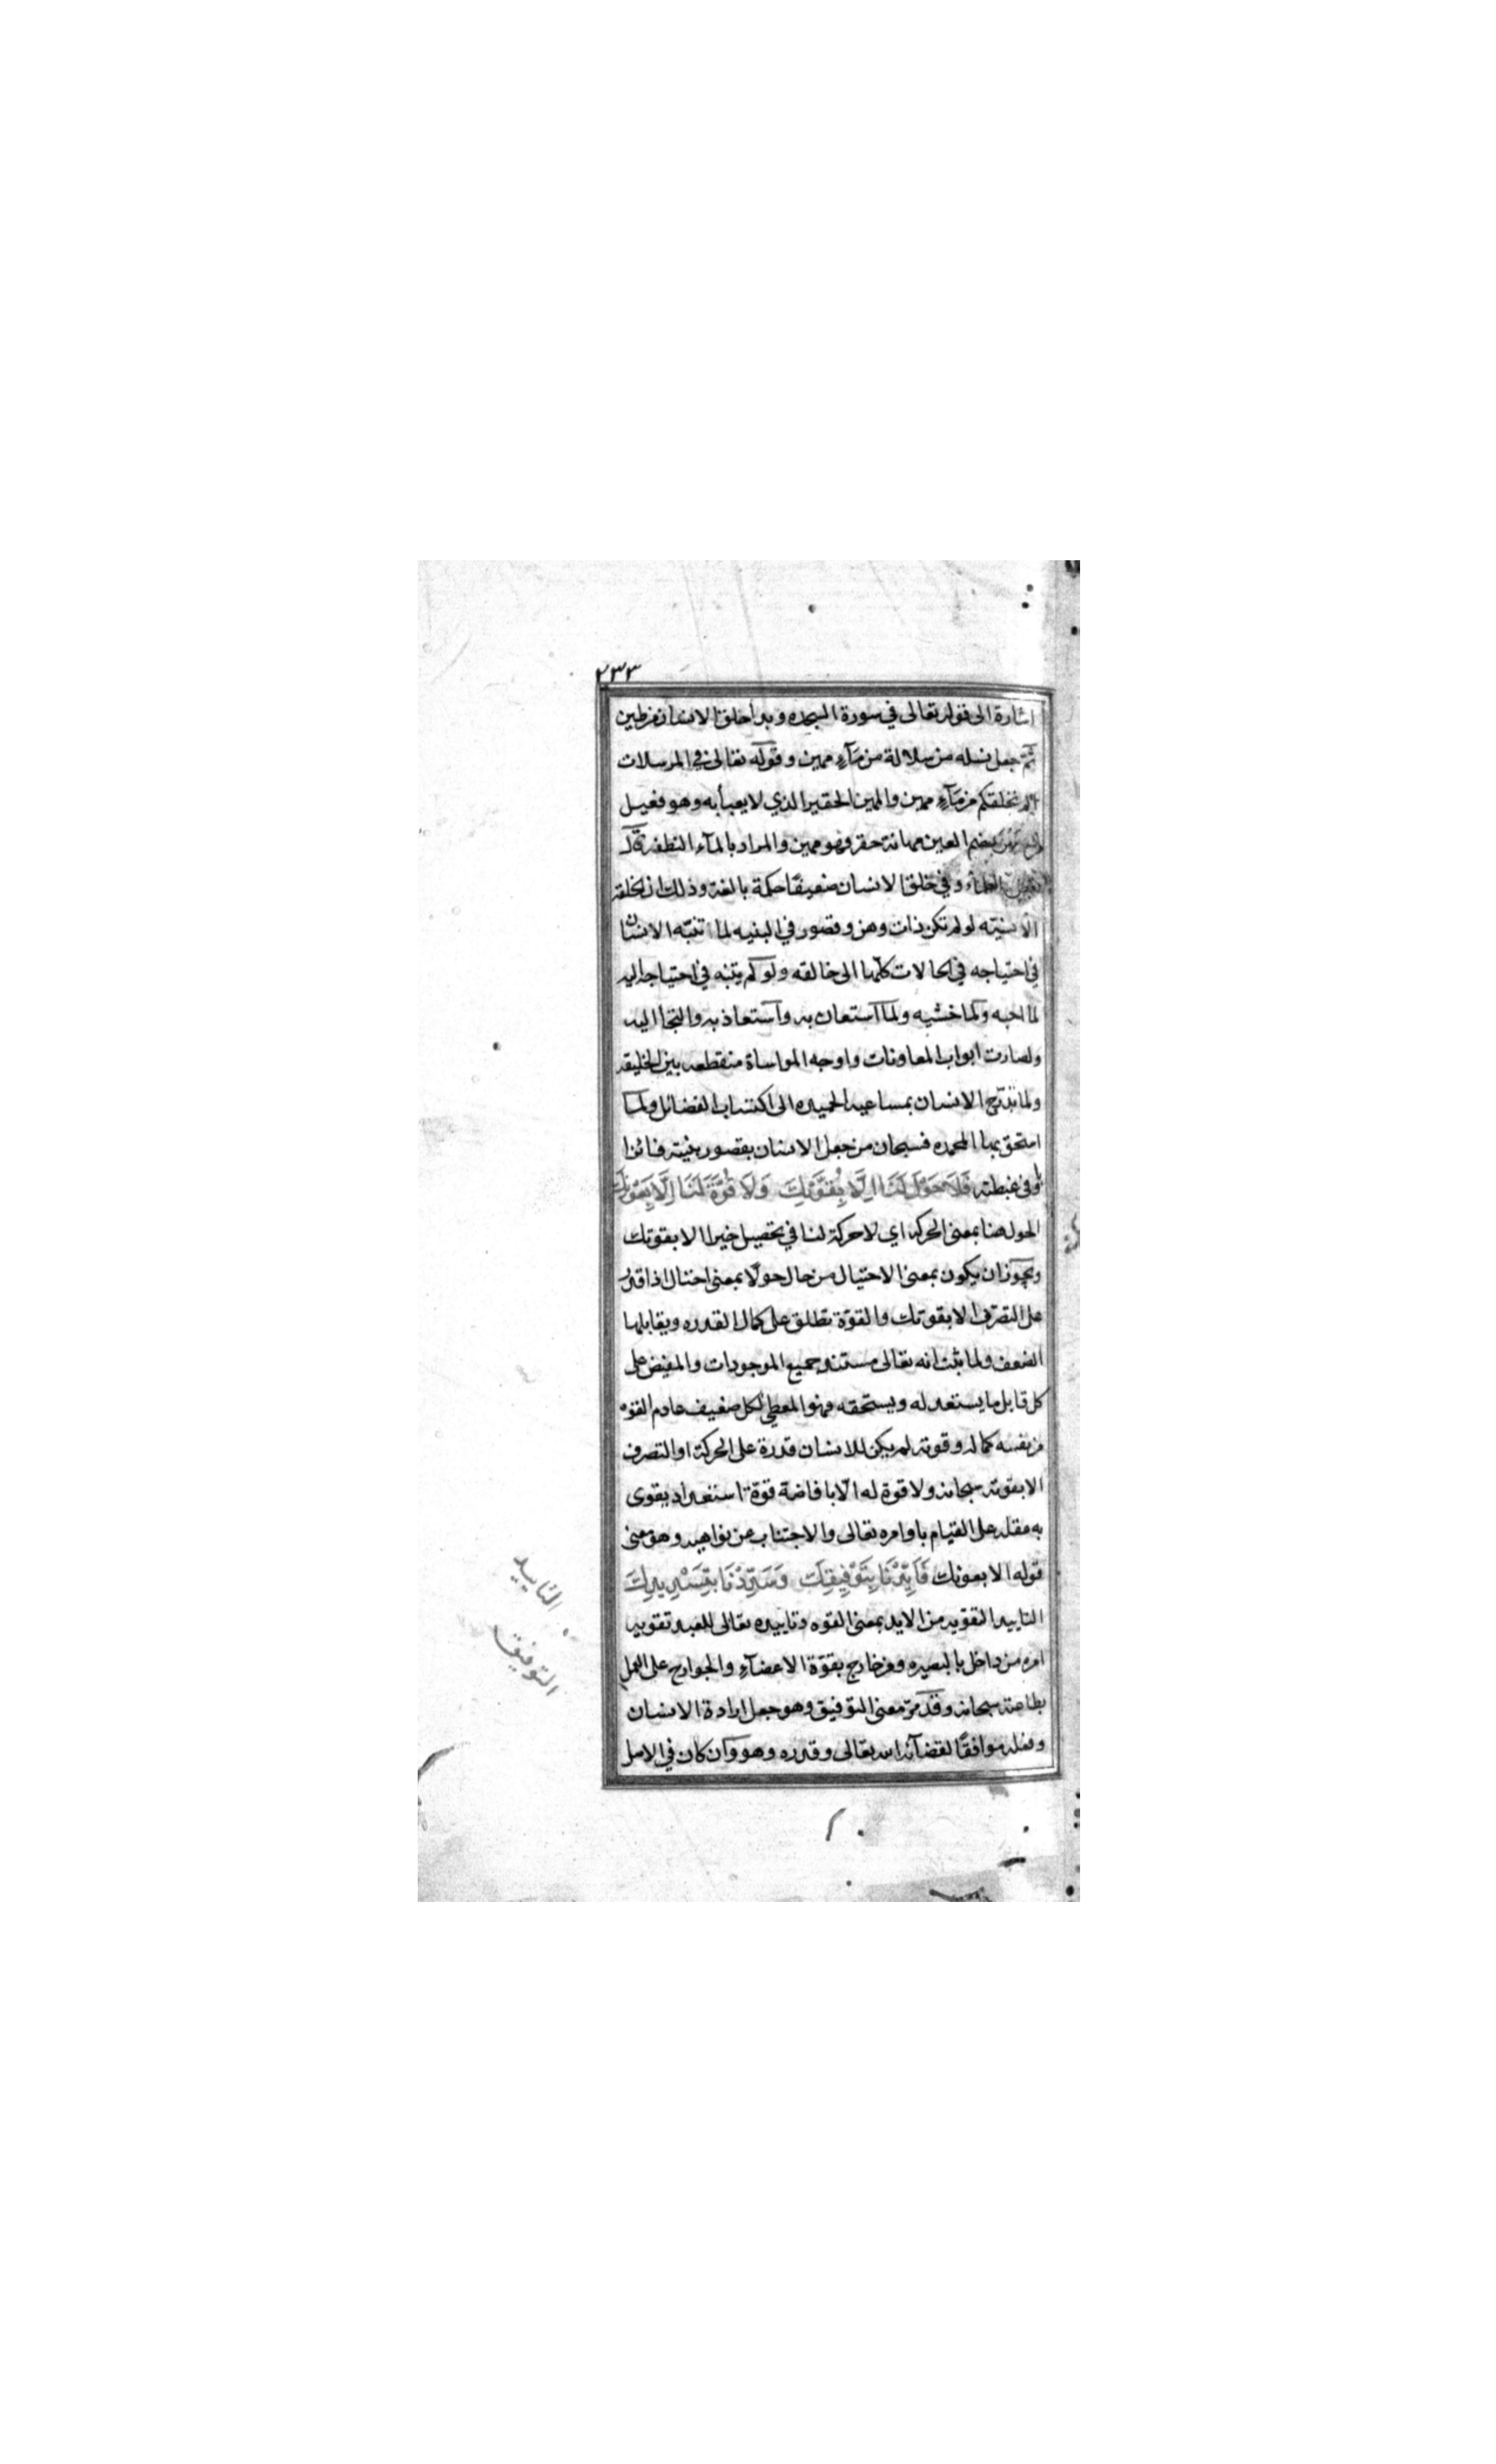 ٢٣٣
اشارة الى قوله تعالى في سورة السجده وبدأ خلق الانسان من طين
ثم جعل نسله من سلالة من مآء مهين وقوله تعالى في المرسلات
الم نخلقكم من مآء مهين والمهين الحقير الذي لا يعبأ به وهو فعيل
بضم العين مهانة حقر فهو مهين والمراد بالمآء النطفة
وفي خلق الانسان ضعيفًا حكمة بالغة وذلك ان الخلقة
الانسيّه لو لم تكن ذات وهن وقصور في البنيه لما تنبّه الانسان
في احتياجه في الحالات كلّها الى خالقه ولو لم يتنبه في احتياجه اليه
لما احبه ولما خشيه ولما استعان به واستعاذ به والتجا اليه
ولصارت ابواب المعاونات واوجه المواساة منقطعه بين الخليقه
ولما تدرّج الانسان بمساعيه الحميده الى اكتساب الفضائل ولما
استحق بها المحمده فسبحان من جعل الانسان بقصور بنيته فائزا
باوفى غبطته فَلَا حَوْلَ لَنَا اِلَّا بِقُوَّتِكَ وَلَا قُوَّةَ لَنَا اِلَّا بِعَوْنِكَ
الحول هنا بمعنى الحركه اي لا حركة لنا في تحصيل خير الا بقوتك
ويجوز ان يكون بمعنى الاحتيال من حال حولًا بمعنى احتال اذا قدر
على التصرف الا بقوتك والقوّة تطلق على كمال القدره ويقابلها
الضعف ولما ثبت انه تعالى مستند جميع الموجودات والمفيض على
كل قابل ما يستعد له ويستحقه فهو المعطي لكل ضعيف عادم القوه
من نفسه كماله وقوته لم يكن للانسان قدرة على الحركة او التصرف
الا بقوته سبحانه ولا قوة له الّا بافاضة قوة استعداد يقوى
به عقله على القيام باوامره تعالى والاجتناب عن نواهيه وهو معنى
قوله الا بعونك فَاَيِّدْنَا بِتَوْفِيقِكَ وَسَدِّدْنَا بِتَسْدِيدِكَ
التاييد التقويه من الايد بمعنى القوه وتاييده تعالى للعبد تقويه
امره من داخل بالبصيره ومن خارج بقوّة الاعضآء والجوارح على العمل
بطاعته سبحانه وقد مرّ معنى التوفيق وهو جعل ارادة الانسان
وفعله موافقًا لقضآئه تعالى وقدره وهو وان كان في الاصل
التاييد
التوفيق